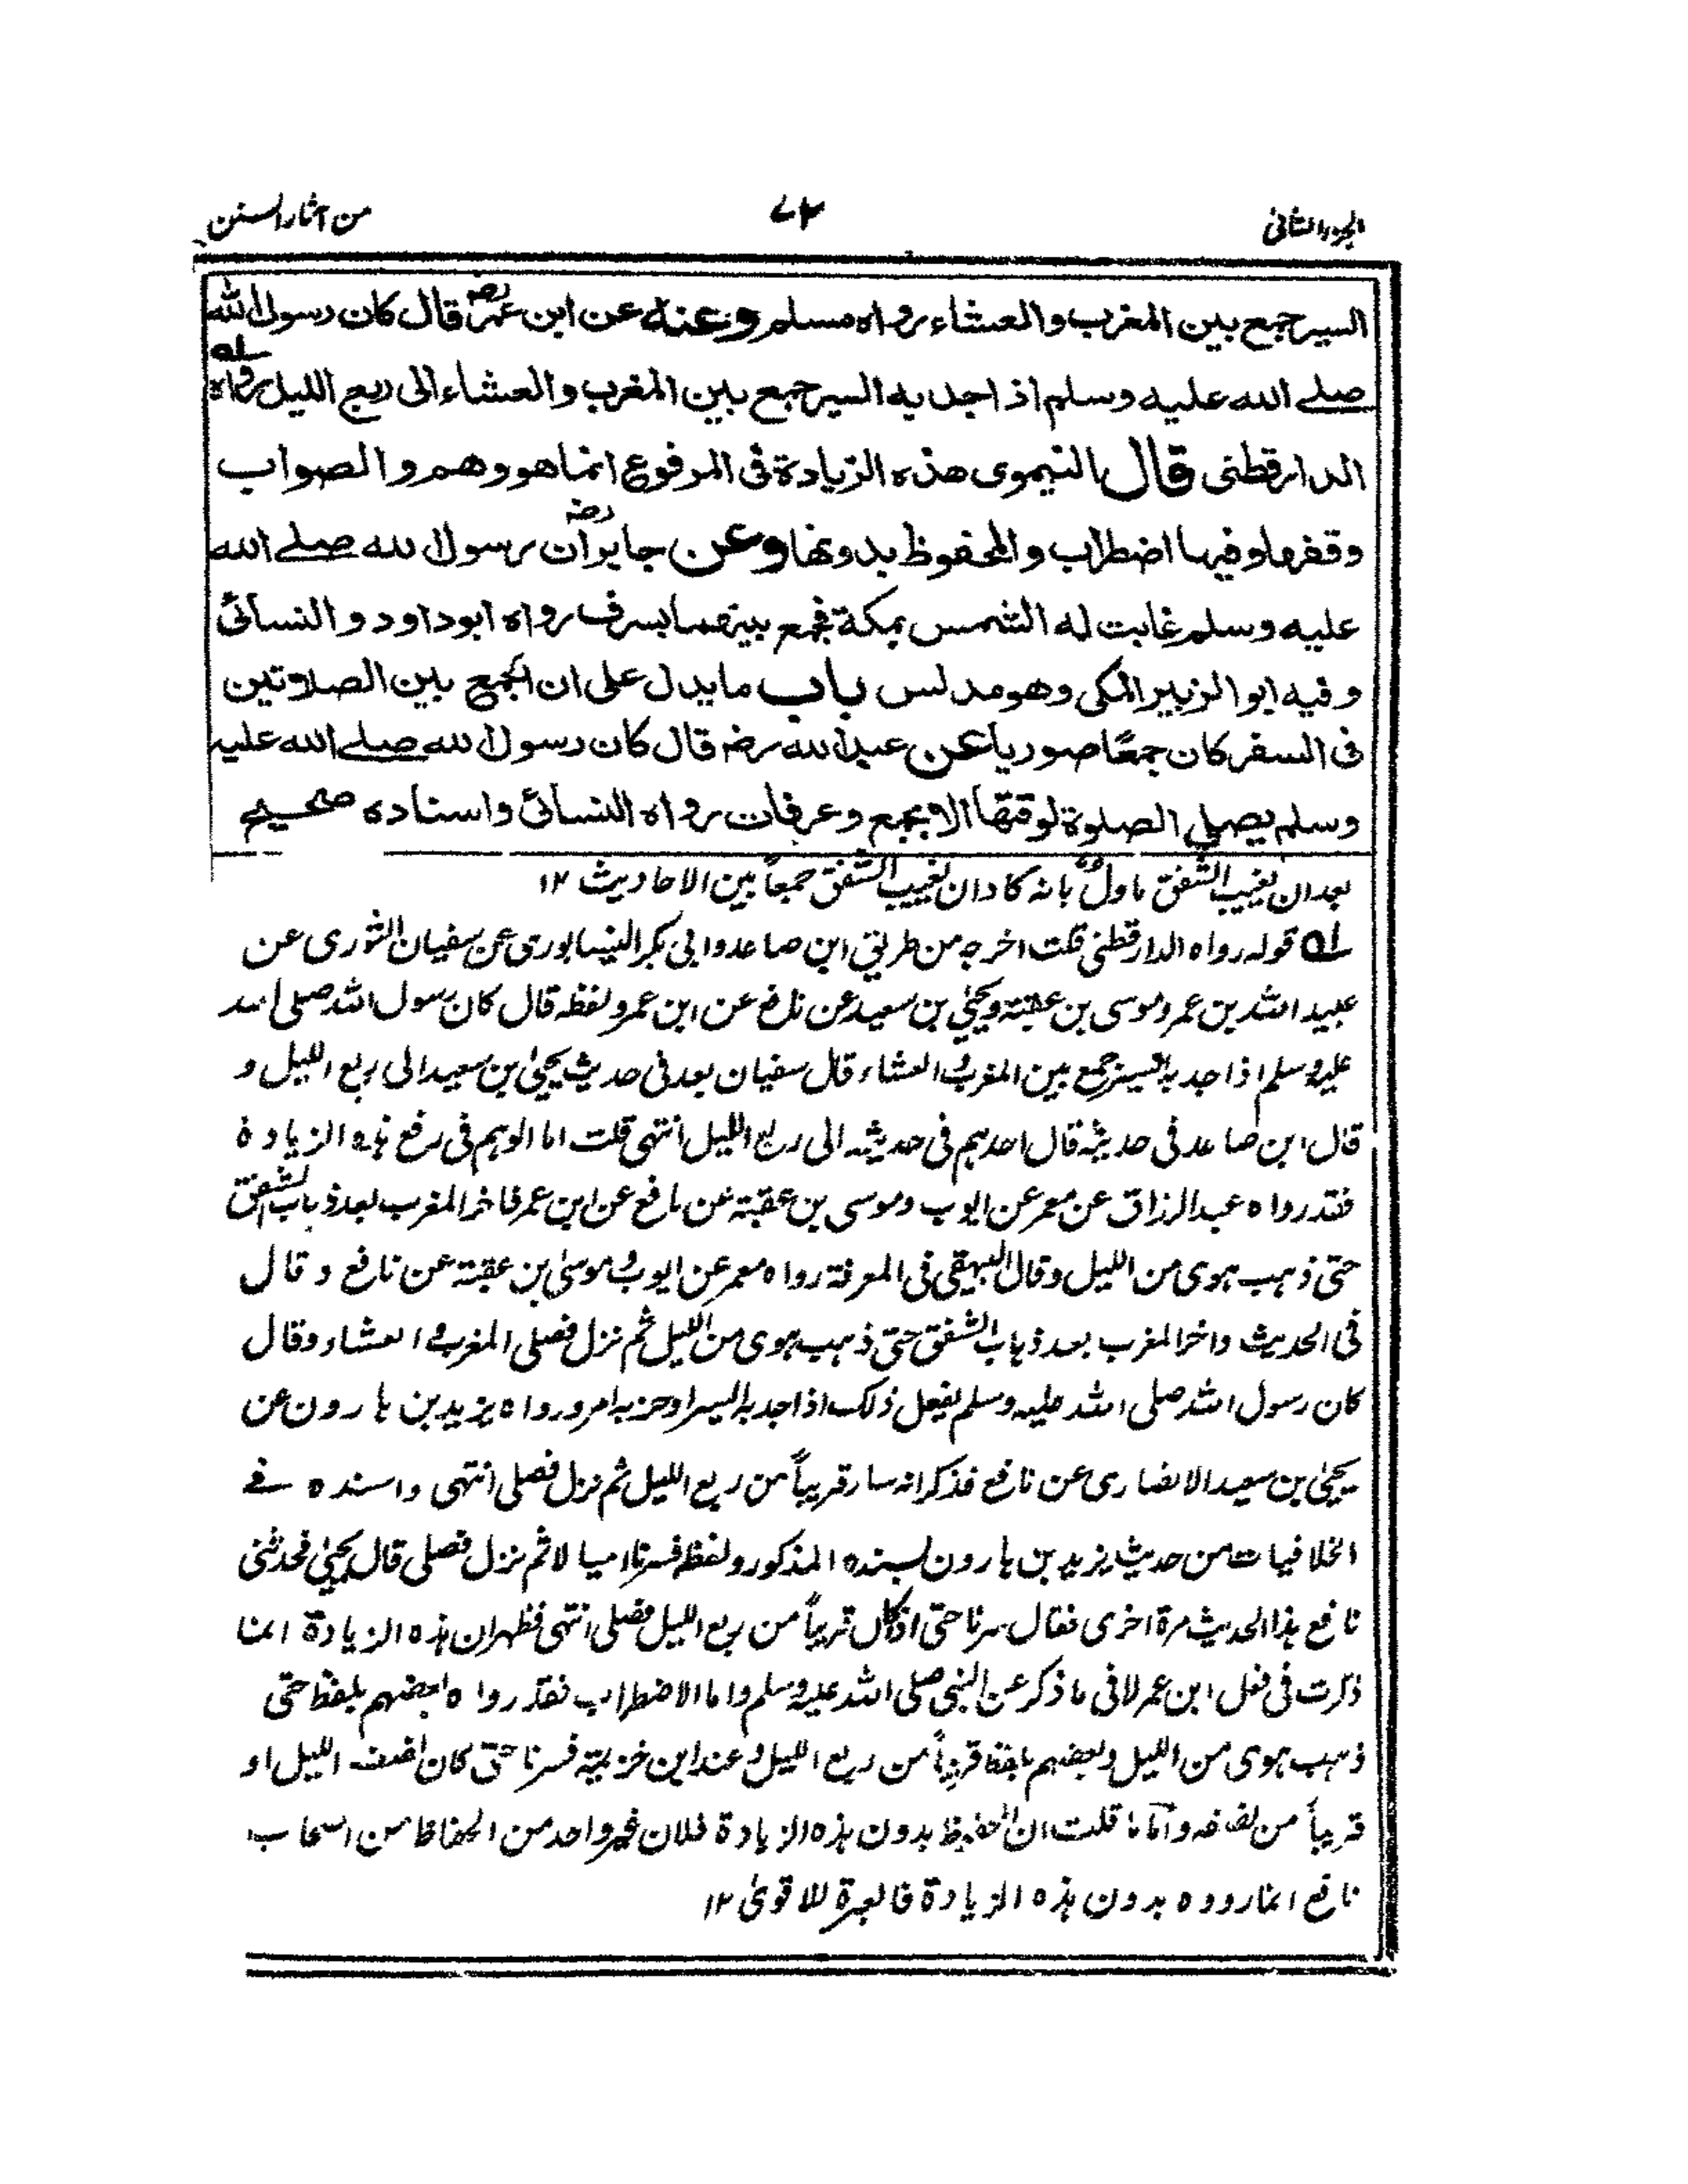 الجزء الثانی
۷۲
من آثار السنن
السیر جمع بین المغرب والعشاء رواه مسلم وعنه عن ابن عمرؓ قال کان رسول الله
صلے الله علیه وسلم اذا جد به السیر جمع بین المغرب والعشاء الی ربع اللیل رواه له
الدارقطنی قال النیموی هذه الزیادة فی المرفوع انما هو وهم والصواب
وقفها وفیها اضطراب والمحفوظ بدونها وعن جابرؓ ان رسول الله صلے الله
علیه وسلم غابت له الشمس بمکة فجمع بینهما بسرف رواه ابوداود والنسائی
وفیه ابو الزبیر المکی وهو مدلس باب ما یدل علی ان الجمع بین الصلاوتین
فی السفر کان جمعًا صوریا عن عبد الله رضـ قال کان رسول الله صلے الله علیه
وسلم یصلی الصلوة لوقتها الا بجمع وعرفات رواه النسائی واسناده صحیح
بعد ان یغیب الشفق ماول بانه کاد ان یغیب الشفق جمعاً بین الاحادیث ۱۲
له قوله رواه الدارقطنی قلت اخرجه من طریق ابن صاعد وابی بکر النیسابوری عن سفیان الثوری عن
عبید الله بن عمر وموسی بن عقبة ویحییٰ بن سعید عن نافع عن ابن عمر ولفظه قال کان رسول الله صلی الله
علیه وسلم اذا جد به السیر جمع بین المغرب والعشاء قال سفیان بعد فی حدیث یحییٰ بن سعید الی ربع اللیل و
قال ابن صاعد فی حدیثه قال احدهم فی حدیثه الی ربع اللیل انتهی قلت اما الوهم فی رفع هذه الزیادة
فقد رواه عبد الرزاق عن معمر عن ایوب وموسی بن عقبة عن نافع عن ابن عمر فاخر المغرب بعد ذهاب الشفق
حتی ذهب هوی من اللیل وقال البیهقی فی المعرفة رواه معمر عن ایوب وموسیٰ بن عقبة عن نافع وقال
فی الحدیث واخر المغرب بعد ذهاب الشفق حتی ذهب هوی من اللیل ثم نزل فصلی المغرب والعشاء وقال
کان رسول الله صلی الله علیه وسلم یفعل ذلک اذا جد به السیر او حزبه امر ورواه یزید بن هارون عن
یحییٰ بن سعید الانصاری عن نافع فذکر انه سار قریباً من ربع اللیل ثم نزل فصلی انتهی واسنده فے
الخلافیات من حدیث یزید بن هارون بسنده المذکور ولفظه فسرنا امیالا ثم نزل فصلی قال یحییٰ فحدثنی
نافع هذا الحدیث مرة اخری فقال سرنا حتی اذا کان قریباً من ربع اللیل فصلی انتهی فظهر ان هذه الزیادة انما
ذکرت فی فعل ابن عمر لا فی ما ذکر عن النبی صلی الله علیه وسلم واما الاضطراب فقد رواه بعضهم بلفظ حتی
ذهب هوی من اللیل وبعضهم بلفظ قریباً من ربع اللیل وعند ابن خزیمة فسرنا حتی کان نصف اللیل او
قریباً من نصفه واما ما قلت ان المحفوظ بدون هذه الزیادة فلان غیر واحد من الحفاظ من اصحاب
نافع انما رووه بدون هذه الزیادة فالعبرة للاقویٰ ۱۲